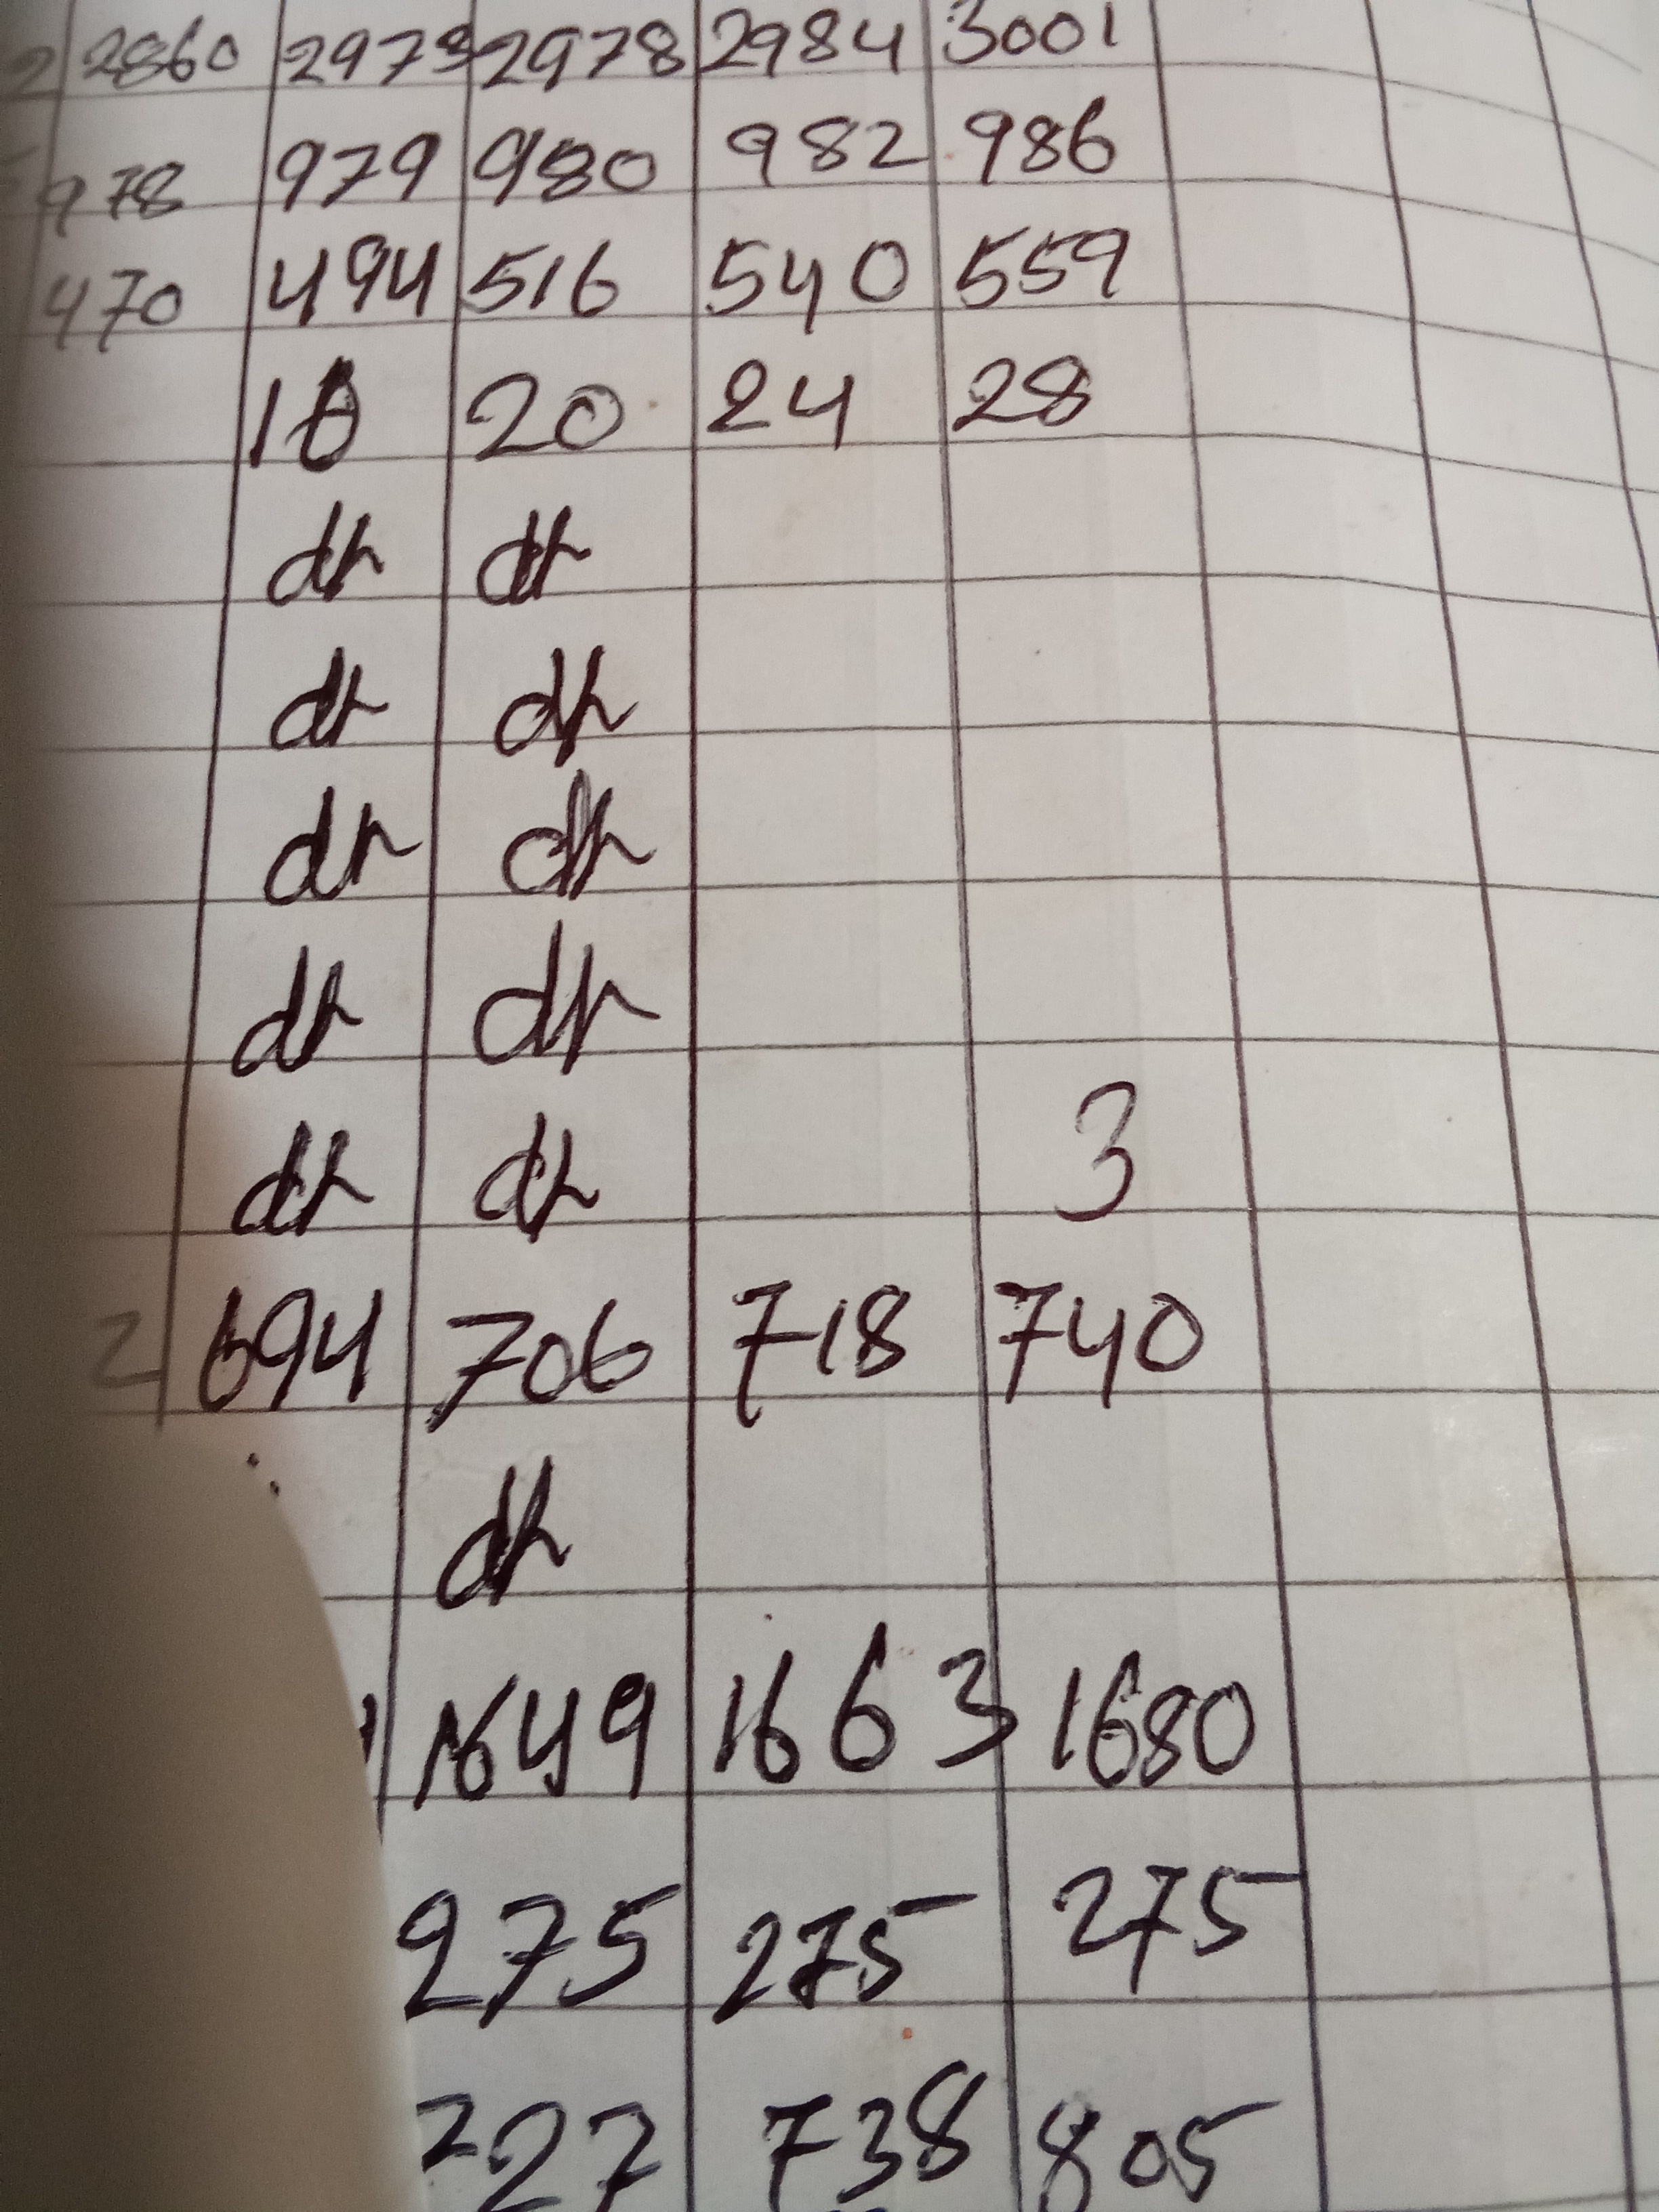 2 2860 2973 2978 2984 3001
978 979 980 982 986
470 494 516 540 559
20 24 28
dr dr
dr dr
dr dr
dr dr
dr dr 3
2 694 706 718 740
dr
1649 1663 1680
275 275 275
727 738 805